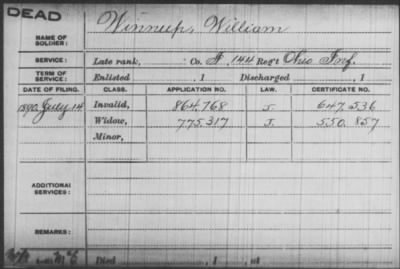 DEAD
NAME OF SOLDIER: Winneup, William
SERVICE: Late rank, Co. F, 144 Reg't Ohio Inf.
TERM OF SERVICE: Enlisted , 1 Discharged , 1
DATE OF FILING. CLASS. APPLICATION NO. LAW. CERTIFICATE NO.
1890, July 14 Invalid, 864,768 J. 647,536
Widow, 775,317 J. 550,857
Minor,
ADDITIONAL SERVICES:
REMARKS:
Died , 1 , at